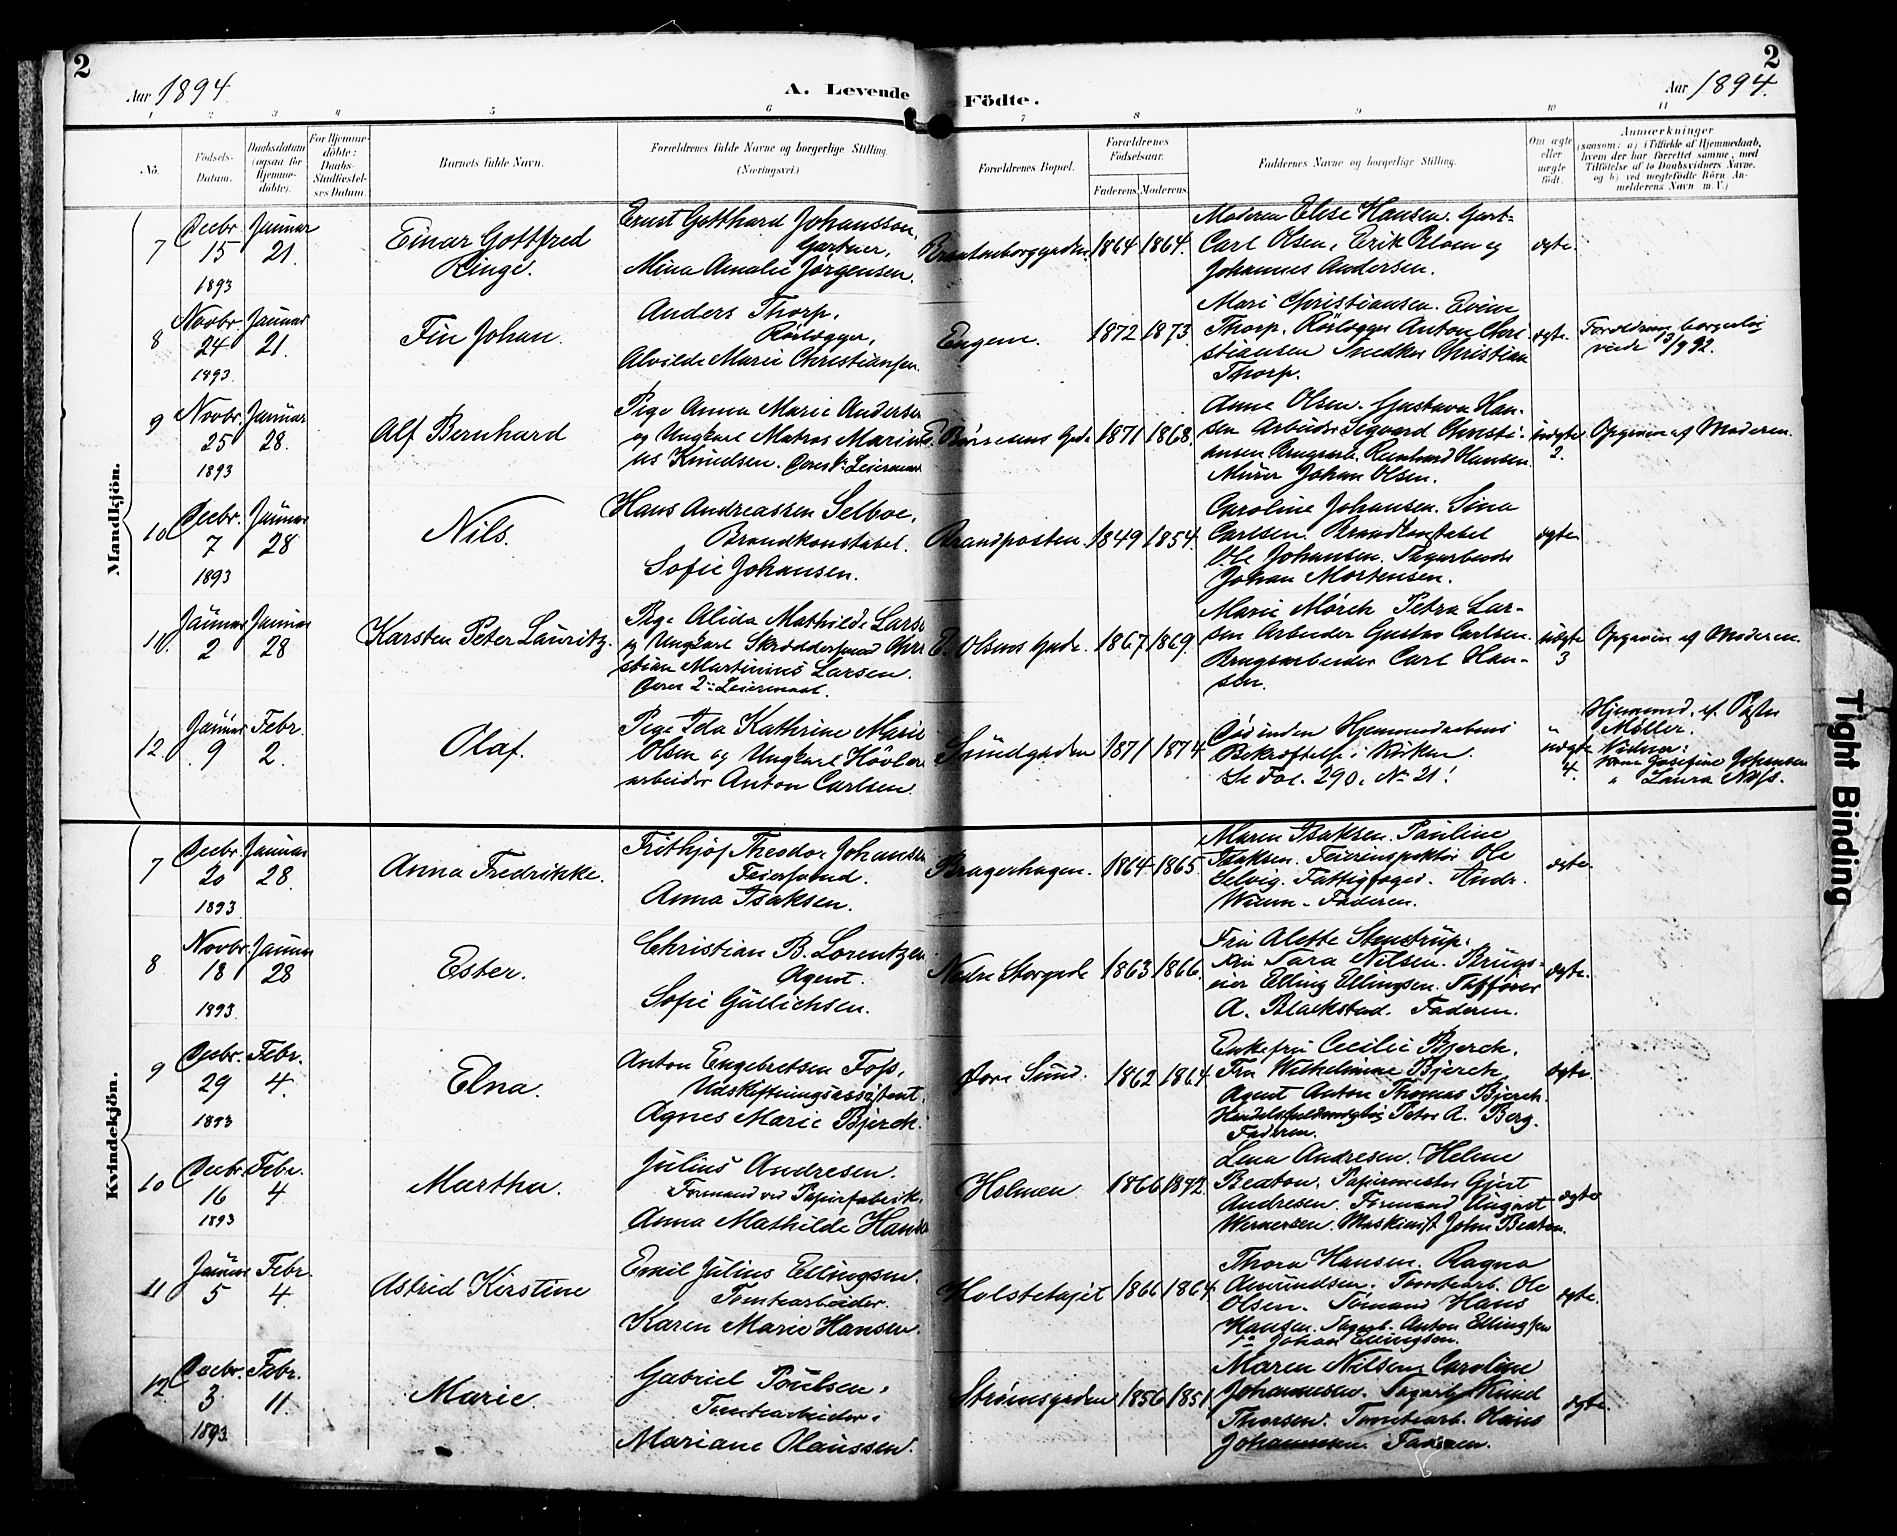 2
Aar 1894.
A. Levende Födte.
2
Aar 1894.
1
2
3
4
5
6
7
8
9
10
11
No.
Födsels-
Datum.
Daabsdatum
(ogsaa for
Hjemme-
döbte).
For Hjemme-
döbte:
Daabs-
Stadfæstel-
ses Datum.
Barnets fulde Navn.
Forældrenes fulde Navne og borgerlige Stilling.
(Næringsvei.)
Forældrenes Bopæl.
Forældrenes
Födselsaar.
Faderens.
Moderens.
Faddernes Navne og borgerlige Stilling.
Om ægte
eller
uægte
født.
Anmærkninger
(saasom: a) i Tilfælde af Hjemmedaab,
hvem der har forrettet samme, med
Tilföielse af to Daabsvidners Navne,
og b) ved uægtefödte Börn An-
melderens Navn m. V.)
Mandkjön.
7
Decbr. 15 1893
Januar 21.
Einar Gottfred
Ringe.
Ernst Gotthard Johansson,
Gartner,
Mina Amalie Jørgensen.
1864 1864.
Moderen Elise Hansen. Gart-
Carl Olsen, Erik Blom og
Johannes Andersen.
ægte.
8
Novbr. 24 1893.
Januar 21.
Fin Johan.
Anders Thorp,
Rörlægger,
Alvilde Marie Christiansen
Engene.
1872 1873.
Mari Christiansen.
Thorp. Rörlægger Anton Chri-
stiansen Snedker Christian
Thorp.
ægte.
Forældrene borgerlig
viede
9
Novbr. 25 1893
Januar 28.
Alf Bernhard
Pige Anna Marie Anderse
og Ungkarl Matros Marin
us Knudsen. Deres 1ste Leiermaal
1871 1868.
Anne Olsen. Gustava Han-
sen Arbeider Sigvard Christi-
ansen Brugsarb. Reinhard Hansen
Murer Johan Olsen.
uægte
2.
Opgiven af Moderen.
10
Decbr. 7 1893
Januar 28
Nils.
Hans Andreassen Selboe,
Brandkonstabel.
Sofie Johansen.
Brandposten.
1849 1854.
Caroline Johansen. Sina
Carlsen. Brandkonstabel
Ole Johansen. Sagarbeider
Johan Mortensen.
ægte
11.
Januar 2
Januar 28
Karsten Peter Lauritz.
Pige Alida Mathilde Larse
og Ungkarl Skræddersvend Chri
stian Martinius Larsen.
Deres 2det Leiermaal.
E. Olsens Gade.
1867 1869.
Marie Mörch Petra Lar-
sen Arbeider Gustav Carlsen.
Brugsarbeider Carl Han-
sen.
uægte
3
Opgiven af Moderen.
12
Januar 9
Febr. 2.
Olaf.
Pige Ida Kathrine Marie
Olsen og Ungkarl Hövler
arbeider Anton Carlsen.
Sundgaden
1871 1874
Död inden Hjemmedaabens
Bekræftelse i Kirken.
Se Fol. 290, No 21!
uægte
4.
Hjemmed. af Pastor
Möller.
Vidner:
Josefine Johansen
" Laura Nils.
Kvindekjön.
7
Decbr. 20 1893
Januar 28.
Anna Fredrikke.
Frithjof Theodor Johanse
Feiersvend.
Anna Isaksen.
Bragerhagen.
1864 1865.
Maren Isaksen. Pauline
Isaksen. Feierinspektör Ole
Selvig. Fattigfoged. Andr.
Wium. Faderen.
ægte.
8
Novbr. 18 1893
Januar 28
Ester.
Christian B. Lorentzen
Agent.
Sofie Gullichsen.
Nedre Storgade
1863 1866.
Fru Alette Stenstrup.
Fru Sara Nilsen. Brugs-
eier Elling Ellingsen.
A. Blakstad. Faderen.
ægte.
9
Decbr. 29 1893
Febr. 4.
Elna.
Anton Engebretsen Foss,
Udskiftningsassistent.
Agnes Marie Bjerch.
Övre Sund.
1862 1864
Enkefru Cecilie Bjerch.
Fru Wilhelmine Bjerch,
Agent Anton Thomas Bjerch.
Handelsfuldmægtig Peter A. Berg.
Faderen.
ægte.
10
Decbr. 16 1893
Febr. 4
Martha.
Julius Andresen.
Formand ved Papirfabrik.
Anna Mathilde Hanse
Holmen
1866 1872.
Lena Andresen. Helene
Beaton. Papirmester Gjert
Andresen. Formand August
Wernersen. Maskinist John Beaton.
ægte
11
Januar 5
Febr. 4.
Astrid Kirstine
Emil Julius Ellingsen.
Tomtearbeider.
Karen Marie Hansen.
1866 1864.
Thora Hansen. Ragna
Amundsen. Tomtearb. Ole
Olsen. Sömand Hans
Hansen. Sagarb. Anton Ellingsen
Johan Ellingsen.
ægte.
12
Decbr. 3 1893.
Febr. 11.
Marie.
Gabriel Poulsen,
Tomtearbeider.
Mariane Olaussen.
Strömsgaden
1856 1851.
Maren Nilsen, Caroline
Johannesen. Sagarb. Knud
Thorsen. Tomtearb. Hans
Johannesen. Faderen.
ægte.
Tight Binding